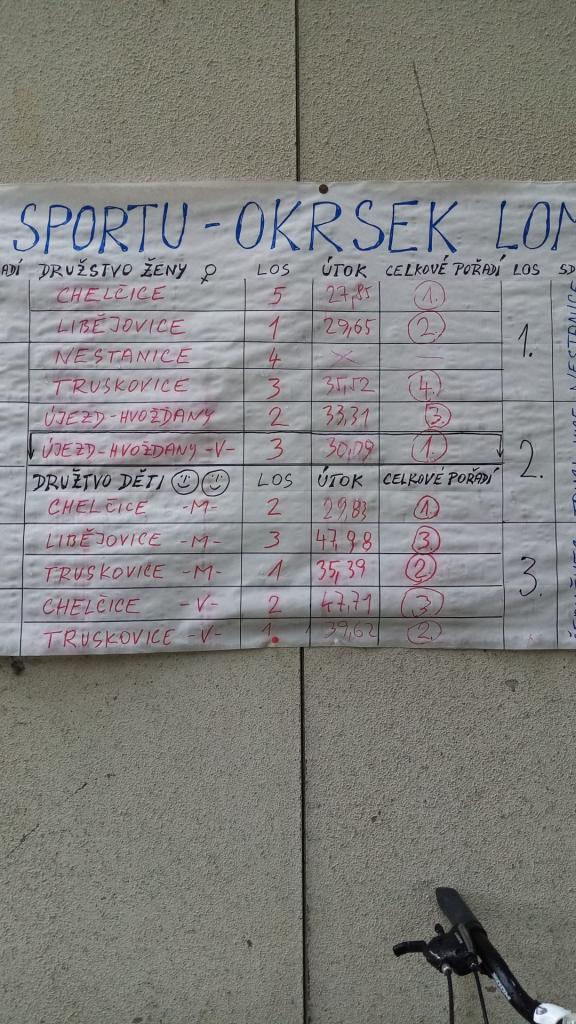 SPORTU - OKRSEK LOM
ADÍ DRUŽSTVO ŽENY ♀ LOS ÚTOK CELKOVÉ POŘADÍ LOS SD
CHELČICE 5 27,85 1.
LIBĚJOVICE 1 29,65 2.
NESTANICE 4 × —
1.
TRUSKOVICE 3 35,52 4.
ÚJEZD-HVOŽĎANY 2 33,31 3.
ÚJEZD-HVOŽĎANY -V- 3 30,09 1.
2.
DRUŽTVO DĚTI LOS ÚTOK CELKOVÉ POŘADÍ
CHELČICE -M- 2 29,83 1.
LIBĚJOVICE -M- 3 47,98 3.
TRUSKOVICE -M- 1 35,39 2.
3.
CHELČICE -V- 2 47,71 3.
TRUSKOVICE -V- 1. 39,62 2.
NESTRANICE